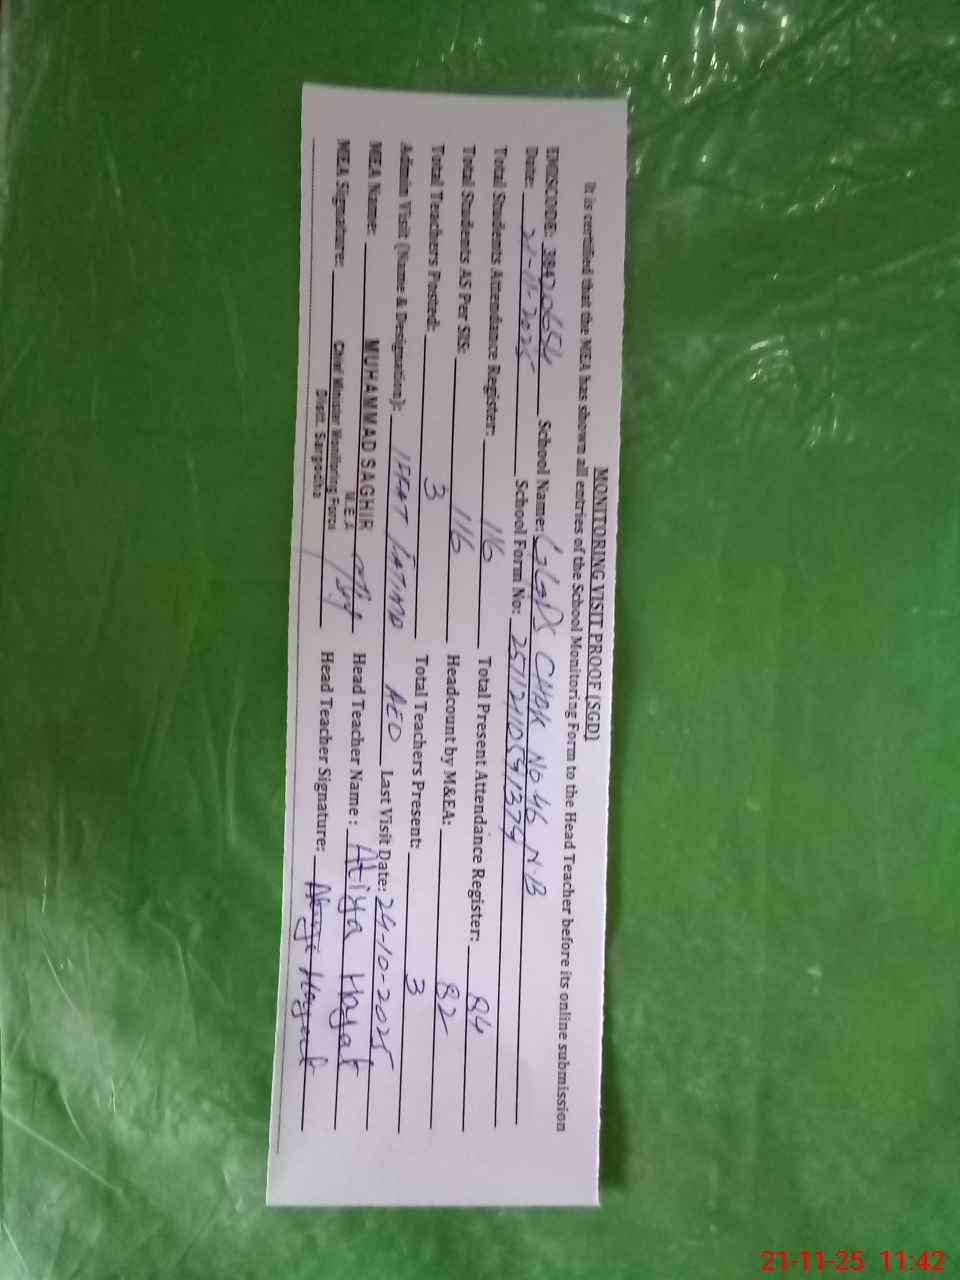 MONITORING VISIT PROOF (SGD)
It is certified that the MEA has shown all entries of the School Monitoring Form to the Head Teacher before its online submission
EMISCODE: 38420654 School Name: GGPS CHAK NO 46 N.B
Date: 21-11-2025 School Form No:
Total Students Attendance Register: 116 Total Present Attendance Register: 84
Total Students AS Per SIS: 116 Headcount by M&EA: 82
Total Teachers Posted: 3 Total Teachers Present: 3
Admin Visit (Name & Designation): IFFAT FATIMA AEO Last Visit Date: 24-10-2025
MEA Name: MUHAMMAD SAGHIR Head Teacher Name: Atiya Hayat
M.E.A
MEA Signature: Chief Minister Monitoring Force Head Teacher Signature: Hayat
Distt. Sargodha
21-11-25 11:42